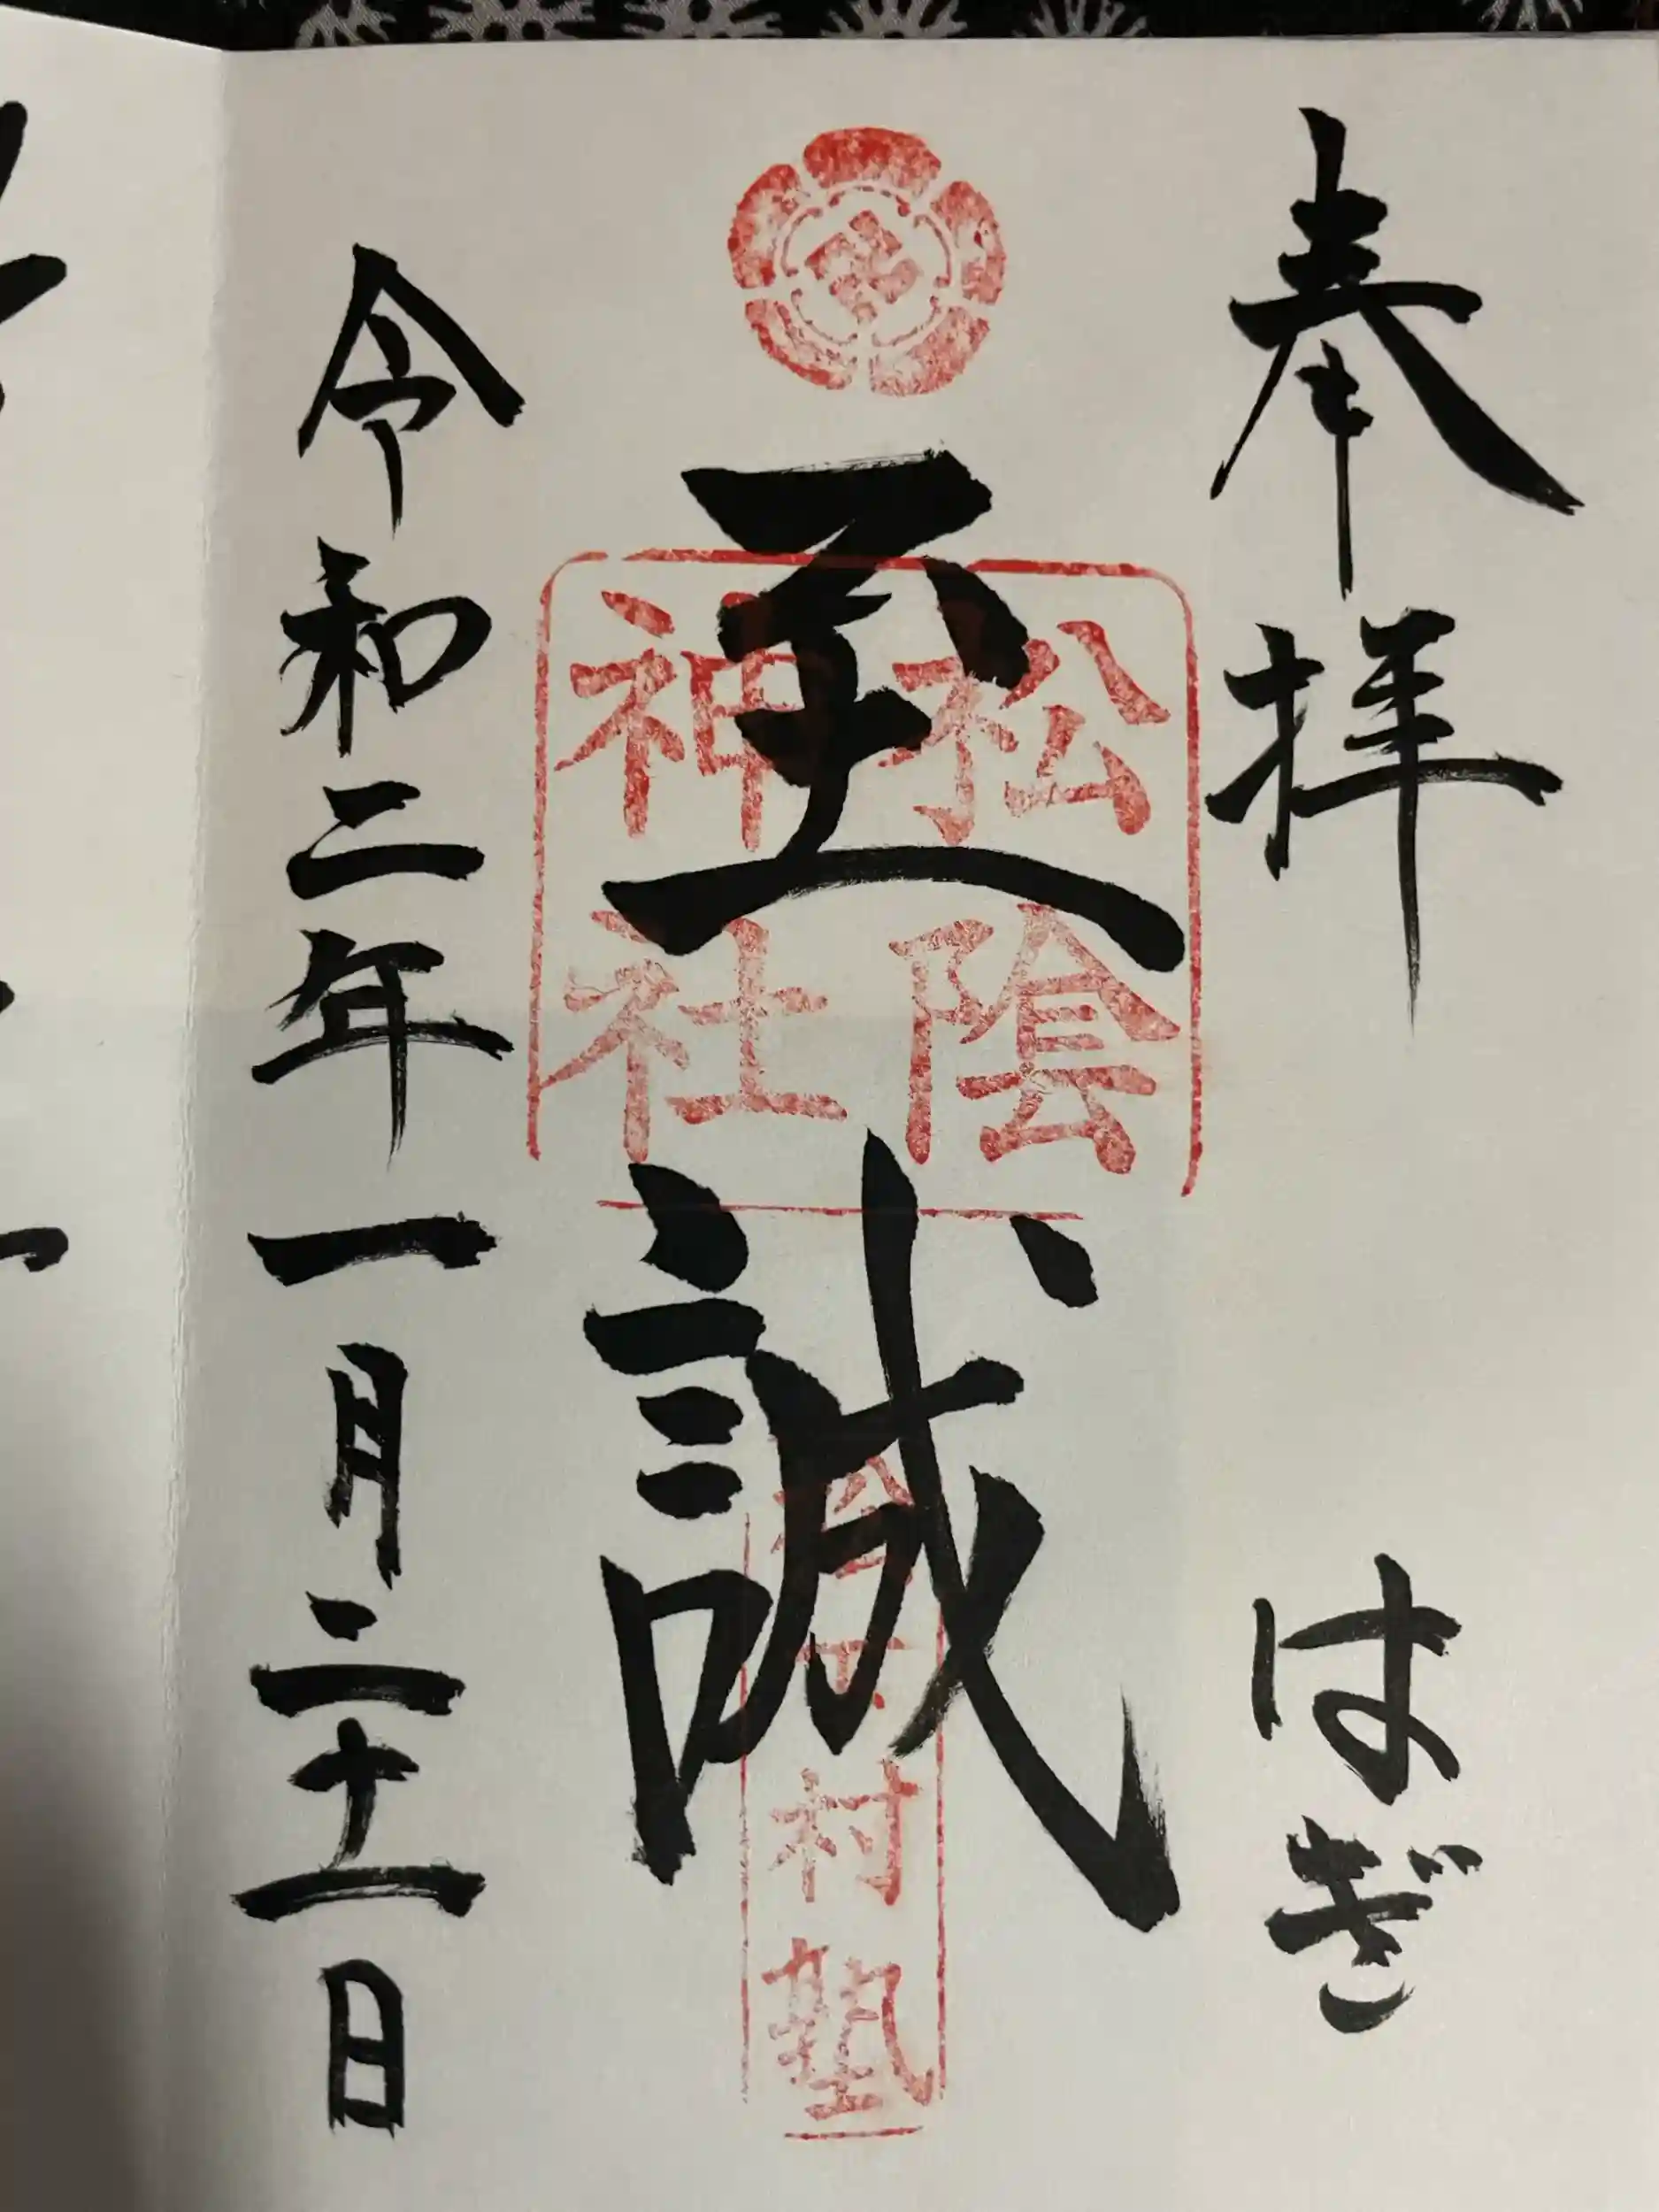 奉拝 はぎ
至誠
松陰
神社
松下村塾
令和二年一月二十一日